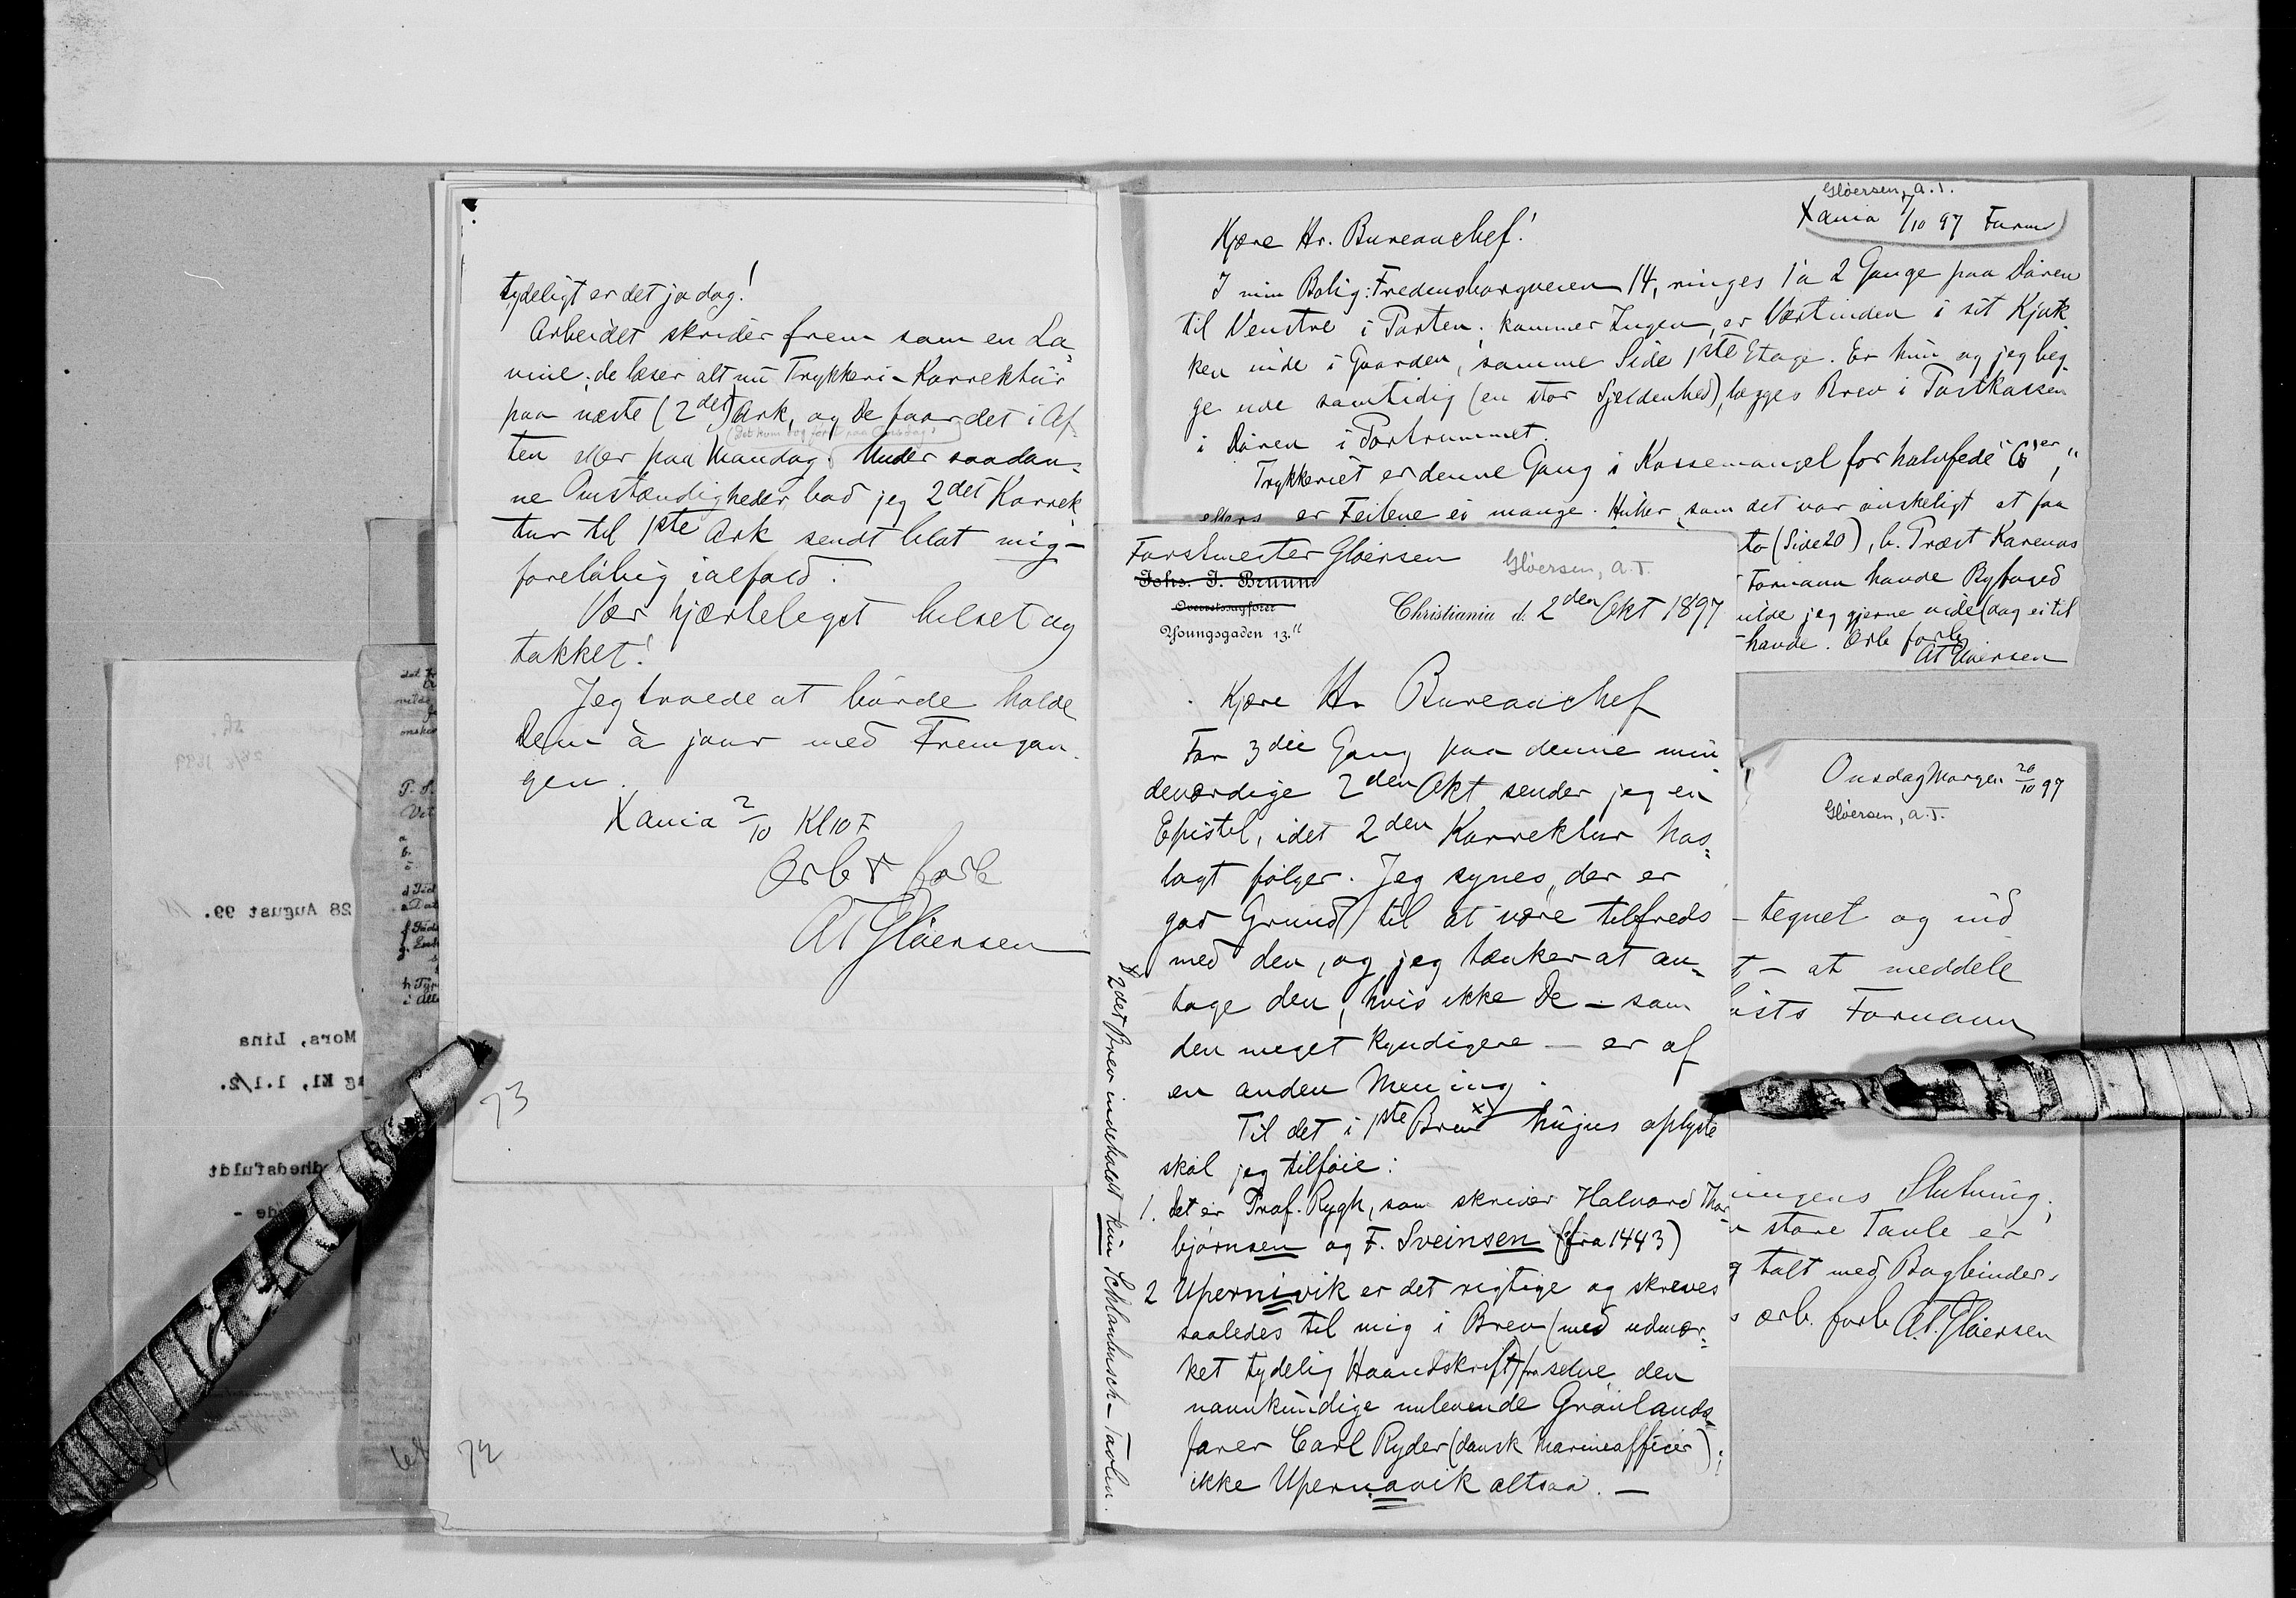 tydeligt er det jo dog!
Arbeidet skrider frem som en La-
vine; de læser alt nu Trykkeri-Korrektur
paa næste (2det) Ark, og De faar det i Af-
(Det kom dog først paa Onsdag)
ten eller paa Mandag. Under saadan-
ne Omstændigheder bad jeg 2det Korrek
tur til 1ste Ark sendt blot mig -
foreløbig ialfald.
Vær hjærteligst hilset og
takket!
Jeg troede at burde holde
Dem à jour med Fremgan-
gen.
Xania 2/10 Kl 10 F
Ærb & forb
AT Gløersen
73
72
28 August 99.
Mors, Lina
Kl, 1.1/2.
Gløersen, A.T.
Xania 1/10 97 Form
Kjære Hr. Bureauchef!
I min Bolig: Fredensborgveien 14, ringes 1 à 2 Gange paa Døren
til Venstre i Porten; kommer Ingen, er Værtinden i sit Kjøk
ken inde i Gaarden, samme Side 1ste Etage. Er hun og jeg beg
ge ude samtidig (en stor Sjeldenhed), lægges Brev i Postkassen
i Døren i Portrummet.
Trykkeriet er denne Gang i Kassemangel for halvfede "G'er",
ellers er Feilene ei mange. Huller, som det var ønskeligt at faa
to (Side 20), b. Præst Karenus
Fornavn havde Byfoged
vilde jeg gjerne vide (dog ei til
havde. Ærb forb
AT Gløersen
Forstmester Gløersen
Gløersen, A.T.
Johs. J. Bruun
Overretssagfører
Youngsgaden 13.II
Christiania d. 2den Okt 1897
Kjære Hr Bureauchef
For 3die Gang paa denne min
deværdige 2den Okt sender jeg en
Epistel, idet 2den Korrektur hos-
lagt følger. Jeg synes, der er
god Grund til at være tilfreds
med den, og jeg tænker at an-
tage den, hvis ikke De - som
den meget kyndigere - er af
en anden Mening.
Til det i 1ste Brev x) hujus oplyste
skal jeg tilføie:
1. Det er Prof. Rygh, som skriver Halvard Thor
bjørnsen og F. Sveinsen (fra 1443)
2 Upernivik er det rigtige og skreves
saaledes til mig i Brev (med udmær-
ket tydelig Haandskrift) fra selve den
navnkundige nulevende Grønlands-
farer Carl Ryder (dansk Marineofficer);
ikke Upernavik altsaa. -
x) 2det Brev indeholdt kun Schlanbusch-Tavlen.
Onsdag Morgen 20/10 97
Gløersen, A.T.
- tegnet og ind
t - at meddele
Fornavn
ingens Slutning;
store Tavle er
talt med Bogbinder-
ærb. forb. A.T. Gløersen